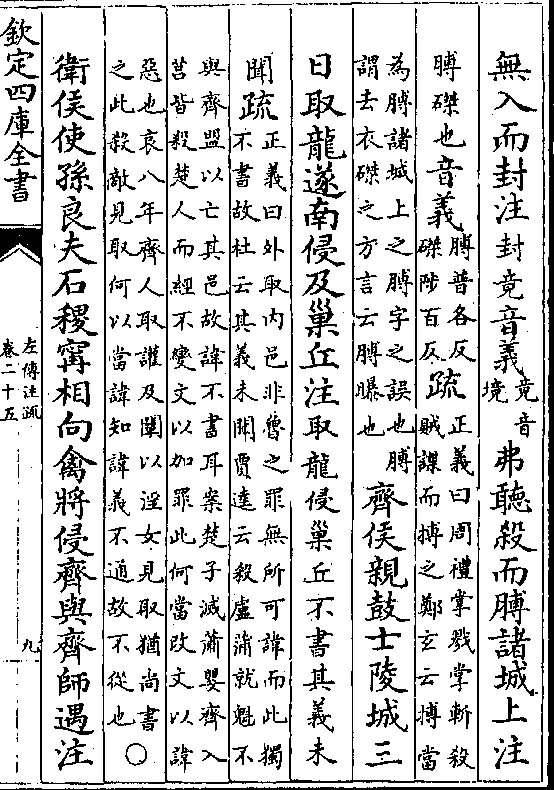 無入而封注封竟音義竟音境弗聽殺而膊諸城上注
膊磔也音義膊普各反磔陟百反疏正義曰周禮掌戮掌斬殺賊諜而搏之鄭玄云搏當
為膊諸城上之膊字之誤也膊謂去衣磔之方言云膊曝也齊侯親鼓士陵城三
日取龍遂南侵及巢丘注取龍侵巢丘不書其義未
聞疏正義曰外取內邑非魯之罪無所可諱而此獨不書故杜云其義未聞賈逵云殺盧蒲就魁不
與齊盟以亡其邑故諱不書耳案楚子滅蕭嬰齊入莒皆殺楚人而經不變文以加罪此何當改文以諱
惡也哀八年齊人取讙及闡以淫女見取猶尚書之此殺敵見取何以當諱知諱義不通故不從也○
衛侯使孫良夫石稷甯相向禽將侵齊與齊師遇注
欽定四庫全書
左傳注疏
卷二十五
九